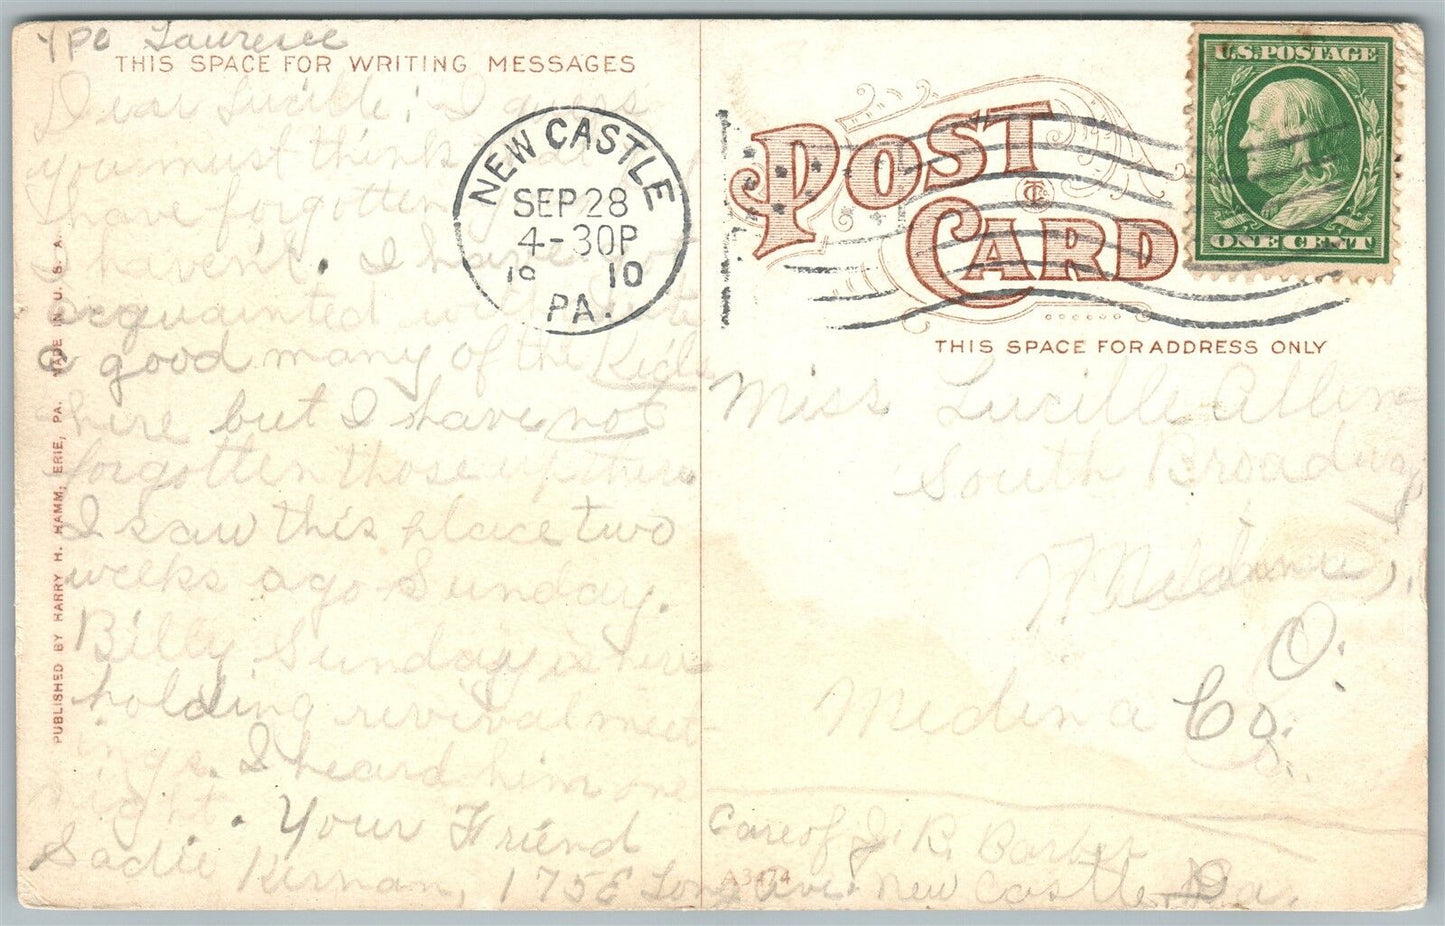 THIS SPACE FOR WRITING MESSAGES
Dear Lucille: I guess
you must think
have forgotten
I haven't. I have
acquainted with
a good many of the Kids
here but I have not
forgotten those up there
I saw this place two
weeks ago Sunday.
Billy Sunday is here
holding revival meet
ings. I heard him one
night.
Your Friend
Sadie Kernan, 175 E Long Ave. New Castle Pa.
Care of J. R. Barber
PUBLISHED BY HARRY H. HAMM, ERIE, PA. MADE IN U. S. A.
NEW CASTLE
SEP 28
4-30P
1910
PA.
POST
CARD
U.S. POSTAGE
ONE CENT
THIS SPACE FOR ADDRESS ONLY
Miss Lucille Allen
South Broadway
O.
Medina Co.
A3474